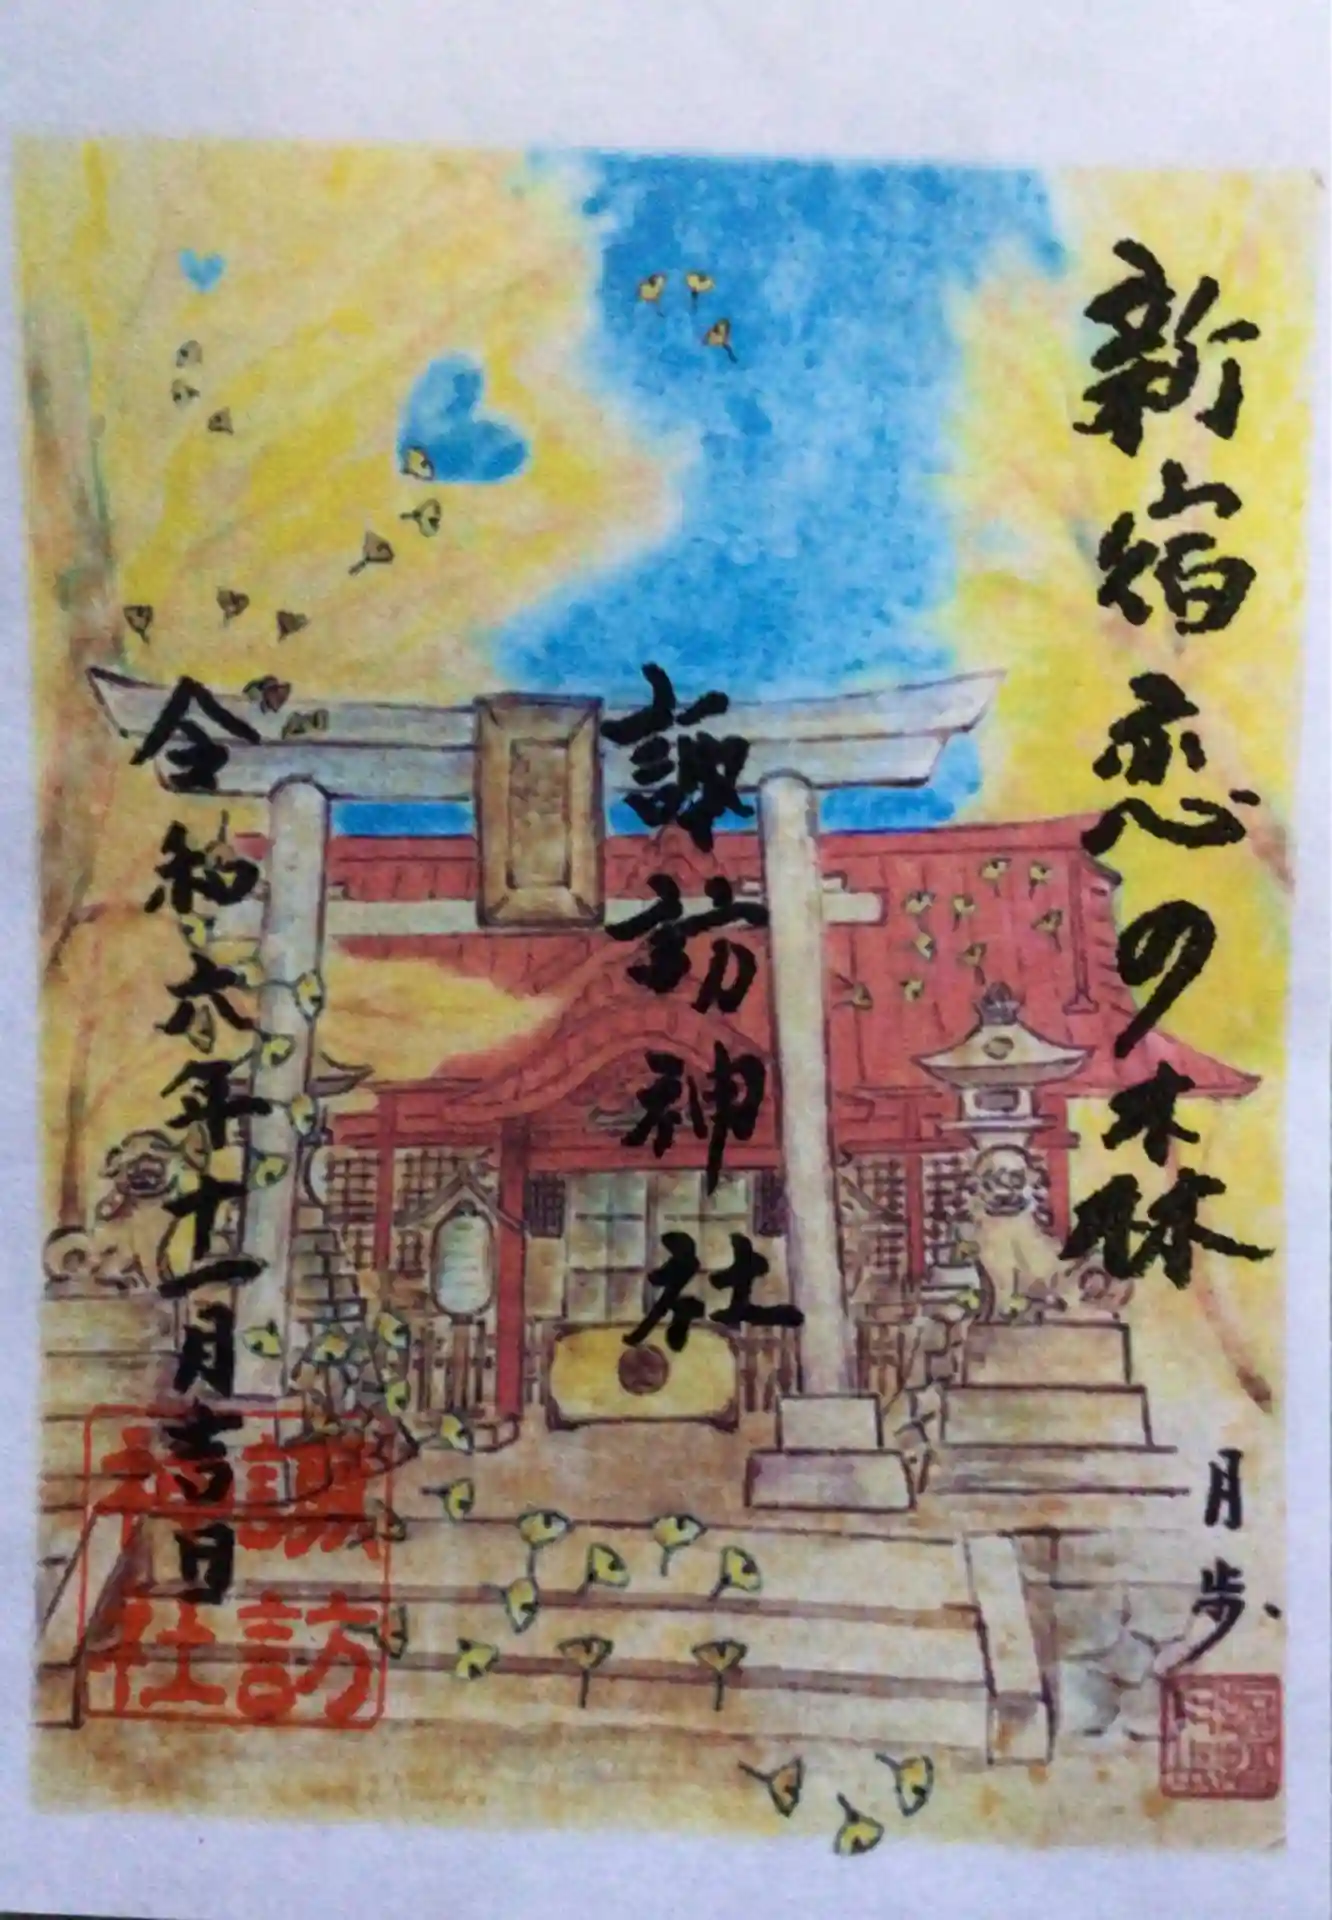 新宿恋の森
諏訪神社
令和六年十一月吉日
諏訪
神社
月歩